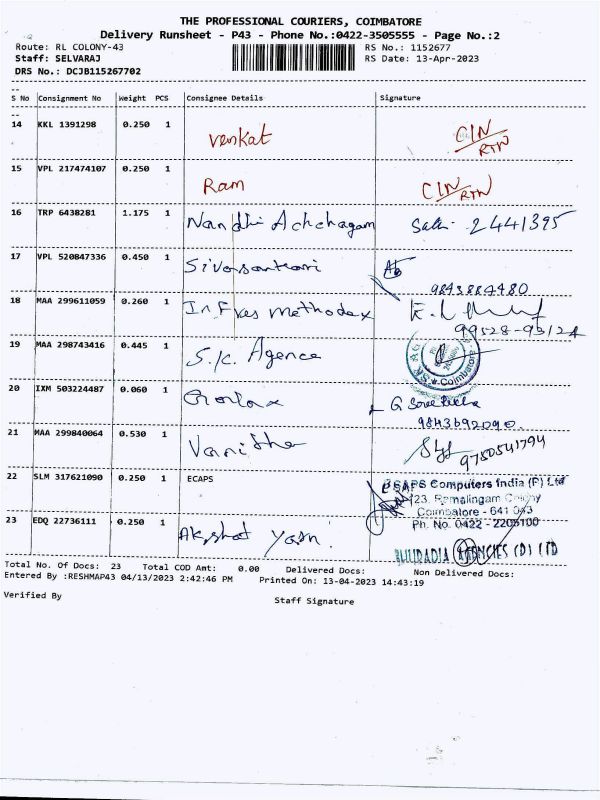 THE PROFESSIONAL COURIERS, COIMBATORE
Delivery Runsheet - P43 - Phone No.:0422-3505555 - Page No.:2
Route: RL COLONY-43 RS No.: 1152677
Staff: SELVARAJ RS Date: 13-Apr-2023
DRS No.: DCJB115267702
S No Consignment No Weight PCS Consignee Details Signature
14 KKL 1391298 0.250 1 Venkat CIN/RTN
15 VPL 217474107 0.250 1 Ram CIN/RTN
16 TRP 6438281 1.175 1 Nandhi Achchagam 2441395
17 VPL 520847336 0.450 1 Sivasankari
9843884480
18 MAA 299611059 0.260 1
19 MAA 298743416 0.445 1 S.K. Agence
20 IXM 503224487 0.060 1
9843692090
21 MAA 299840064 0.530 1 Vanitha 9750541794
22 SLM 317621090 0.250 1 ECAPS
ECAPS Computers India (P) Ltd
123, Ramalingam Colony
Coimbatore - 641 043
Ph. No. 0422 - 2205100
23 EDQ 22736111 0.250 1 Akshat Yarn
AGENCIES (P) LTD
Total No. Of Docs: 23 Total COD Amt: 0.00 Delivered Docs: Non Delivered Docs:
Entered By :RESHMAP43 04/13/2023 2:42:46 PM Printed On: 13-04-2023 14:43:19
Verified By Staff Signature